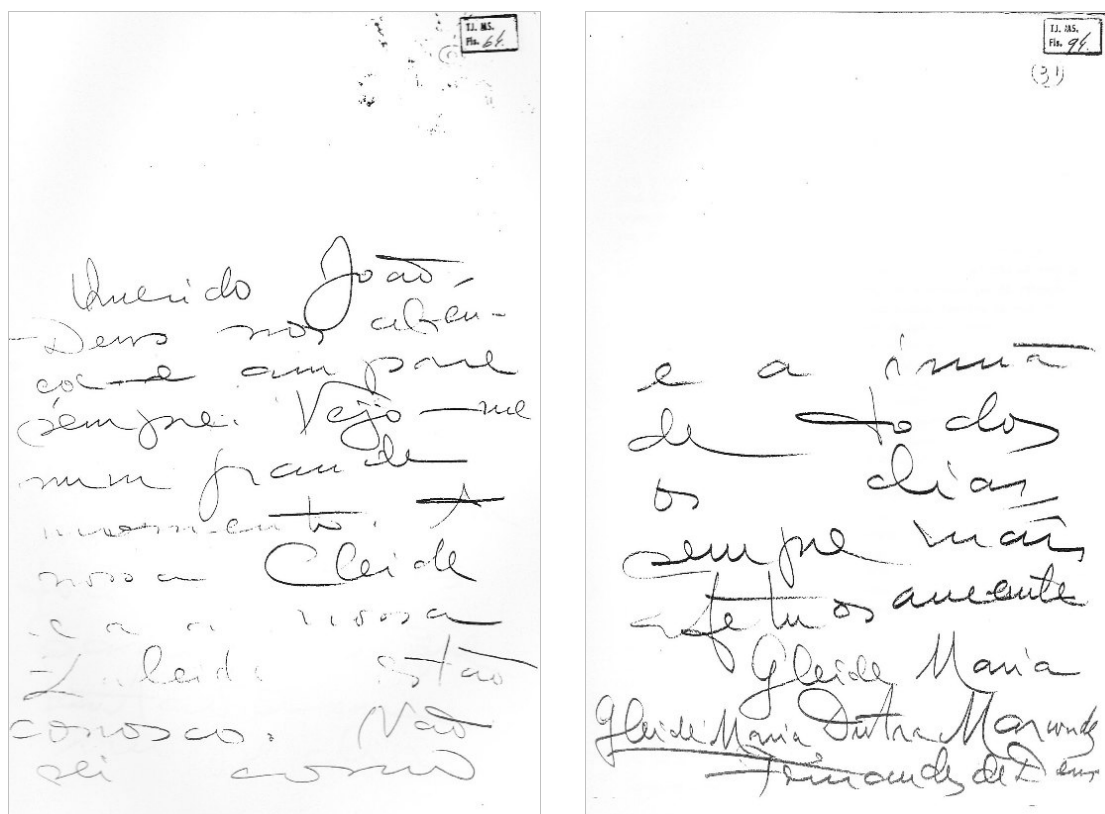 TJ. MS.
Fls. 64
Querido João,
Deus nos aben-
çoe e ampare
sempre. Vejo-me
num grande
momento. A
nossa Cleide
e a nossa
Zuleide estão
conosco. Não
sei como
TJ. MS.
Fls. 94
(31)
e a irmã
de todos
os dias,
sempre mais
afetuosamente
Gleide Maria
Gleide Maria Dutra Marcondes
Fernandes de Deus